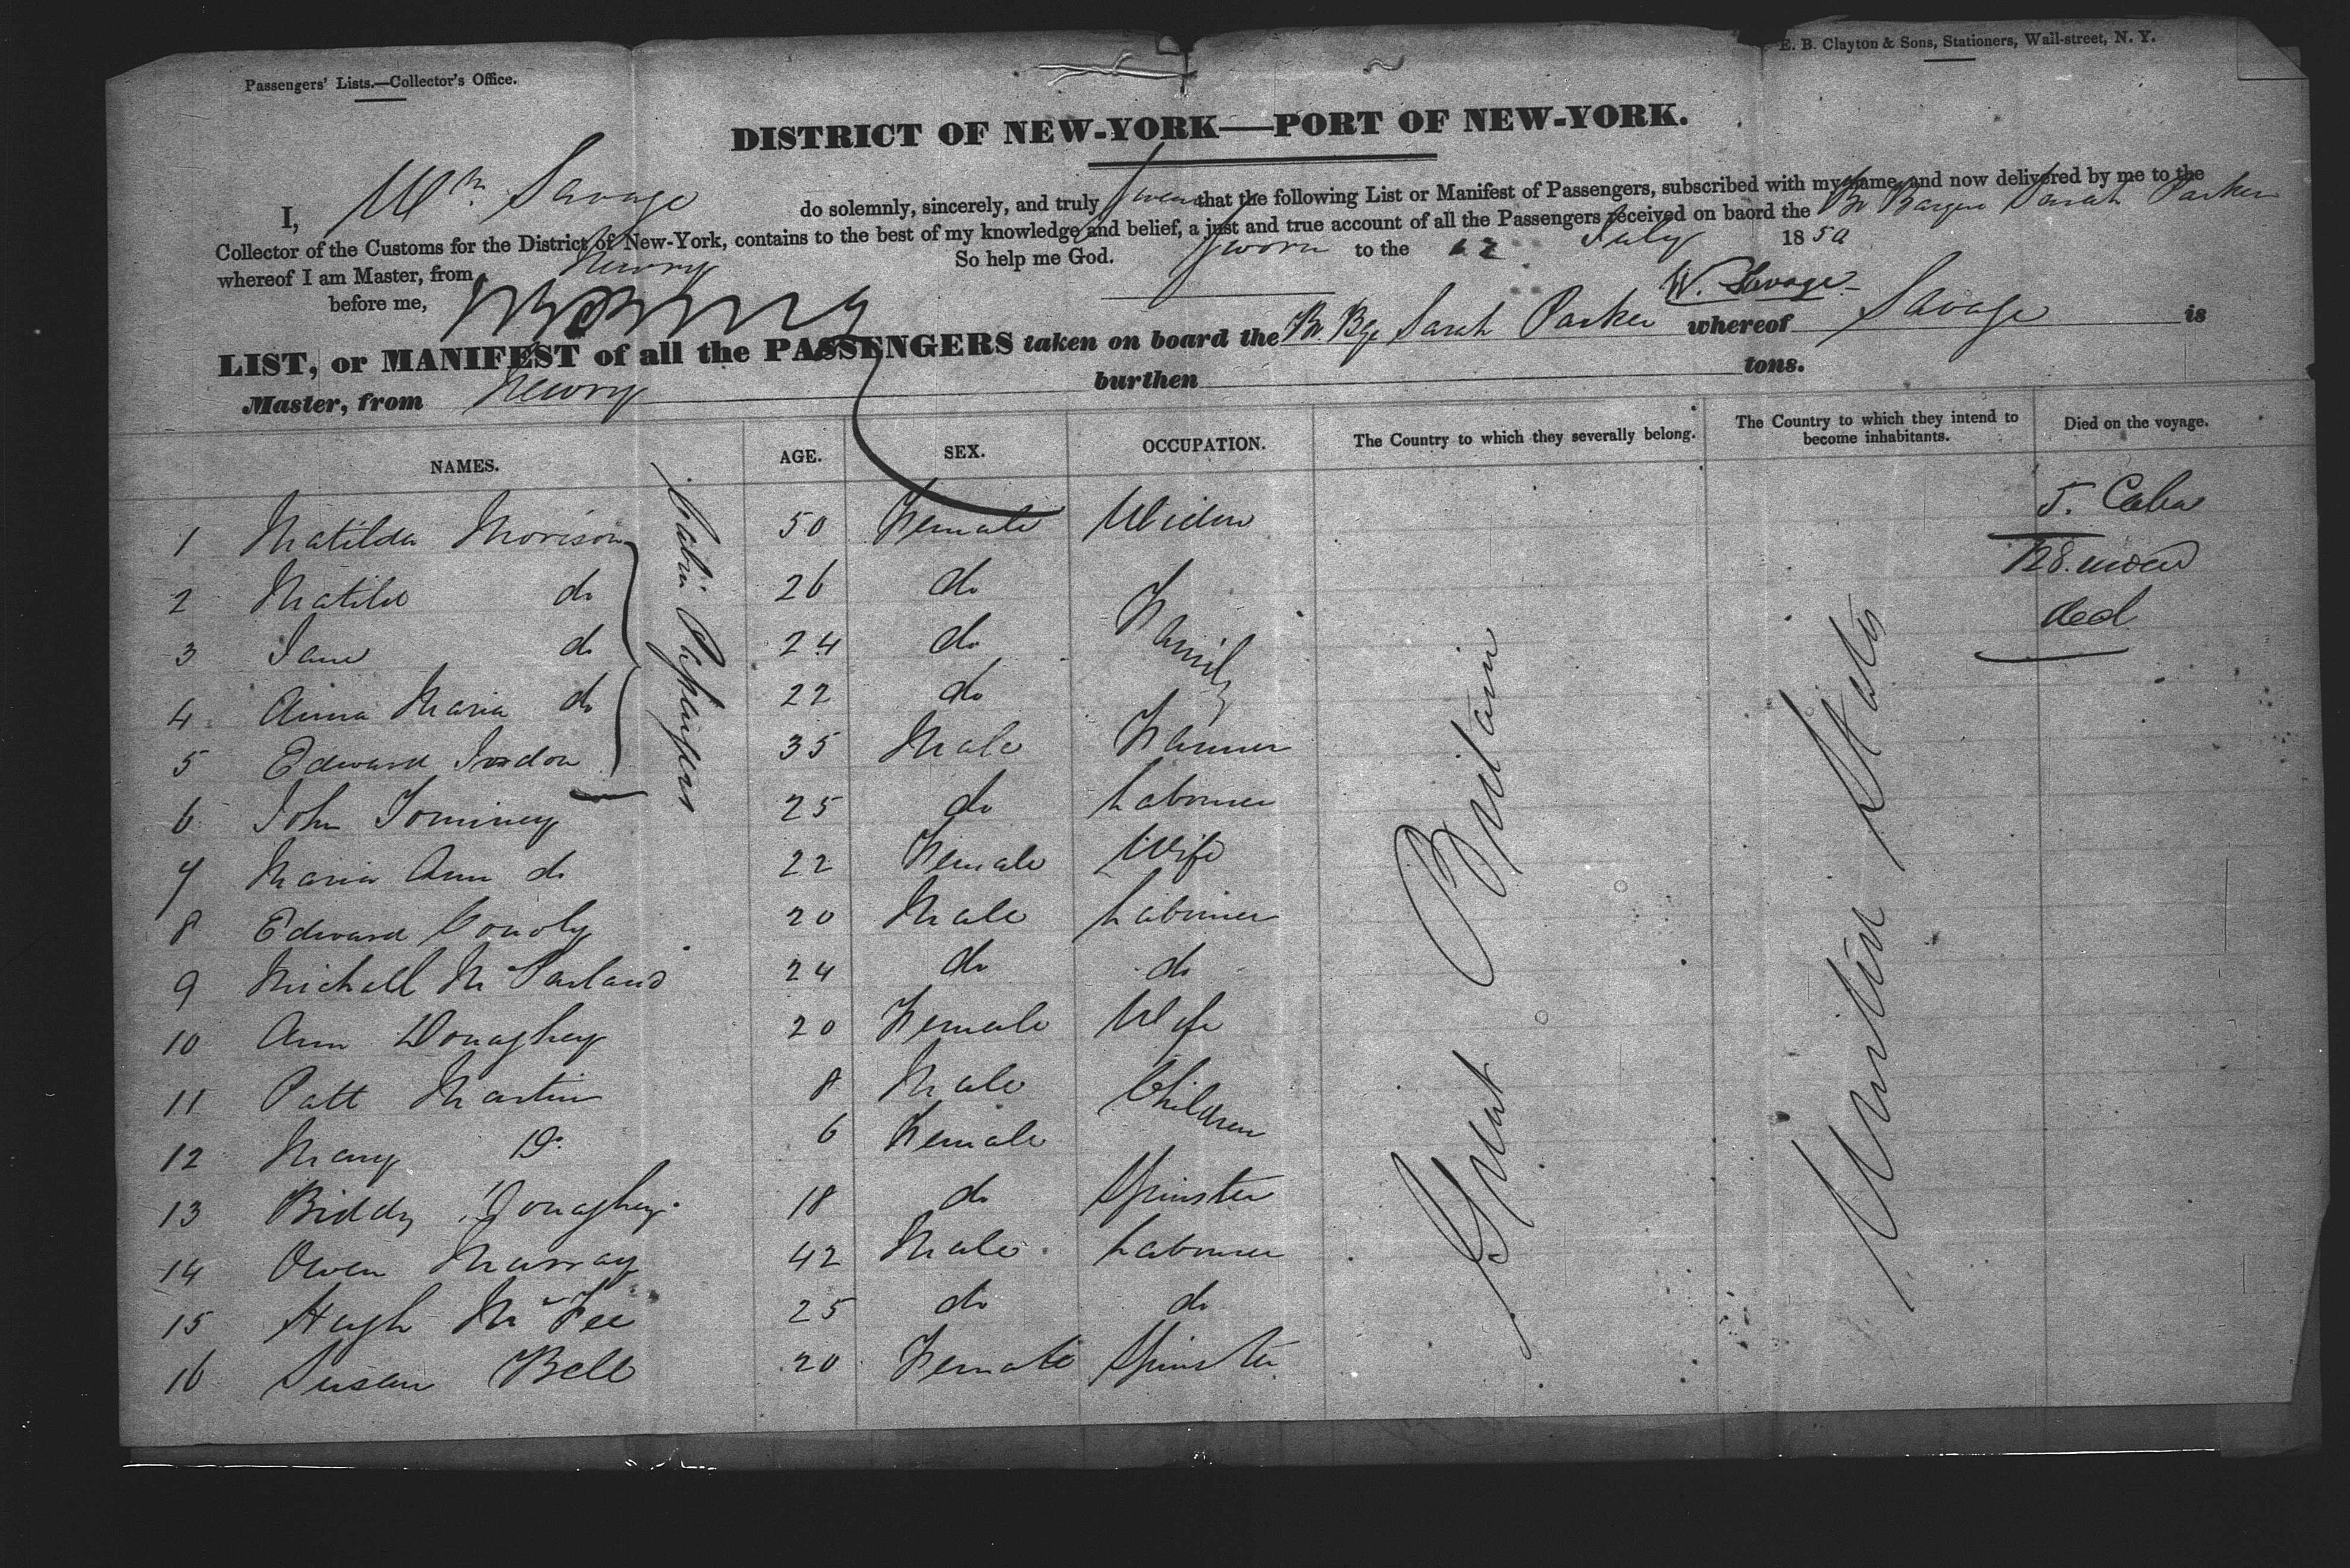 Passengers' Lists.—Collector's Office.
E. B. Clayton & Sons, Stationers, Wall-street, N. Y.
DISTRICT OF NEW-YORK—PORT OF NEW-YORK.
I, Wm Savage do solemnly, sincerely, and truly swear that the following List or Manifest of Passengers, subscribed with my name, and now delivered by me to the
Collector of the Customs for the District of New-York, contains to the best of my knowledge and belief, a just and true account of all the Passengers received on baord the Br Barque Sarah Parker
whereof I am Master, from Newry So help me God. Sworn to the 12 July 1850
before me, W. Savage
LIST, or MANIFEST of all the PASSENGERS taken on board the Br. Bqe Sarah Parker whereof Savage is
Master, from Newry burthen tons.
NAMES. AGE. SEX. OCCUPATION. The Country to which they severally belong. The Country to which they intend to become inhabitants. Died on the voyage.
Cabin Passengers
Great Britain
United States
1 Matilda Morison 50 Female Widow 5.
2 Matilda do 26 do Family 128.
3 Jane do 24 do
4 Anna Maria do 22 do
5 Edward 35 Male Farmer
6 John Tominey 25 do Labourer
7 Maria Ann do 22 Female Wife
8 Edward Conoly 20 Male Labourer
9 Michall Mc Parland 24 do do
10 Ann Donaghey 20 Female Wife
11 Patt Martin 8 Male Children
12 Mary Do 6 Female
13 Biddy Donaghey 18 do Spinster
14 Owen Murray 42 Male Labourer
15 Hugh Mc Fee 25 do do
16 Susan Bell 20 Female Spinster